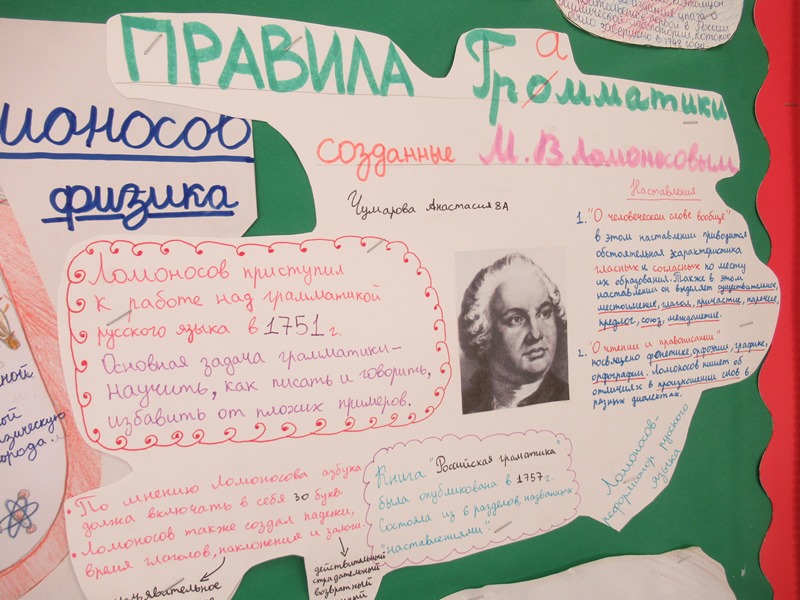 ПРАВИЛА Громматики
а
созданные М.В.Ломоносовым
Чумарова Анастасия 8А
Ломоносов приступил
к работе над грамматикой
русского языка в 1751 г.
Основная задача грамматики-
научить, как писать и говорить,
избавить от плохих примеров.
Наставления
1. "О человеческом слове вообще"
в этом наставлении приводится
обстоятельная характеристика
гласных и согласных по месту
их образования. Также в этом
наставлении он выделяет существительное,
местоимение, глагол, причастие, наречие,
предлог, союз, междометие.
2. "О чтении и правописании"
посвящено фонетике, орфоэпии, графике,
орфографии. Ломоносов пишет об
отличиях в произношении слов в
разных диалектах.
Ломоносов-
реформатор русского
языка
• По мнению Ломоносова азбука
должна включать в себя 30 букв.
• Ломоносов также создал падежи,
время глаголов, наклонения и залоги.
действительный
страдательный
возвратный
Книга "Росийская граматика"
была опубликована в 1757 г.
Состояла из 6 разделов, названных
"наставлениями".
ионосов
физика
ной
ой
изическую
орода.
в России
химической лаборатории, которое
было завершено в 1748 году.